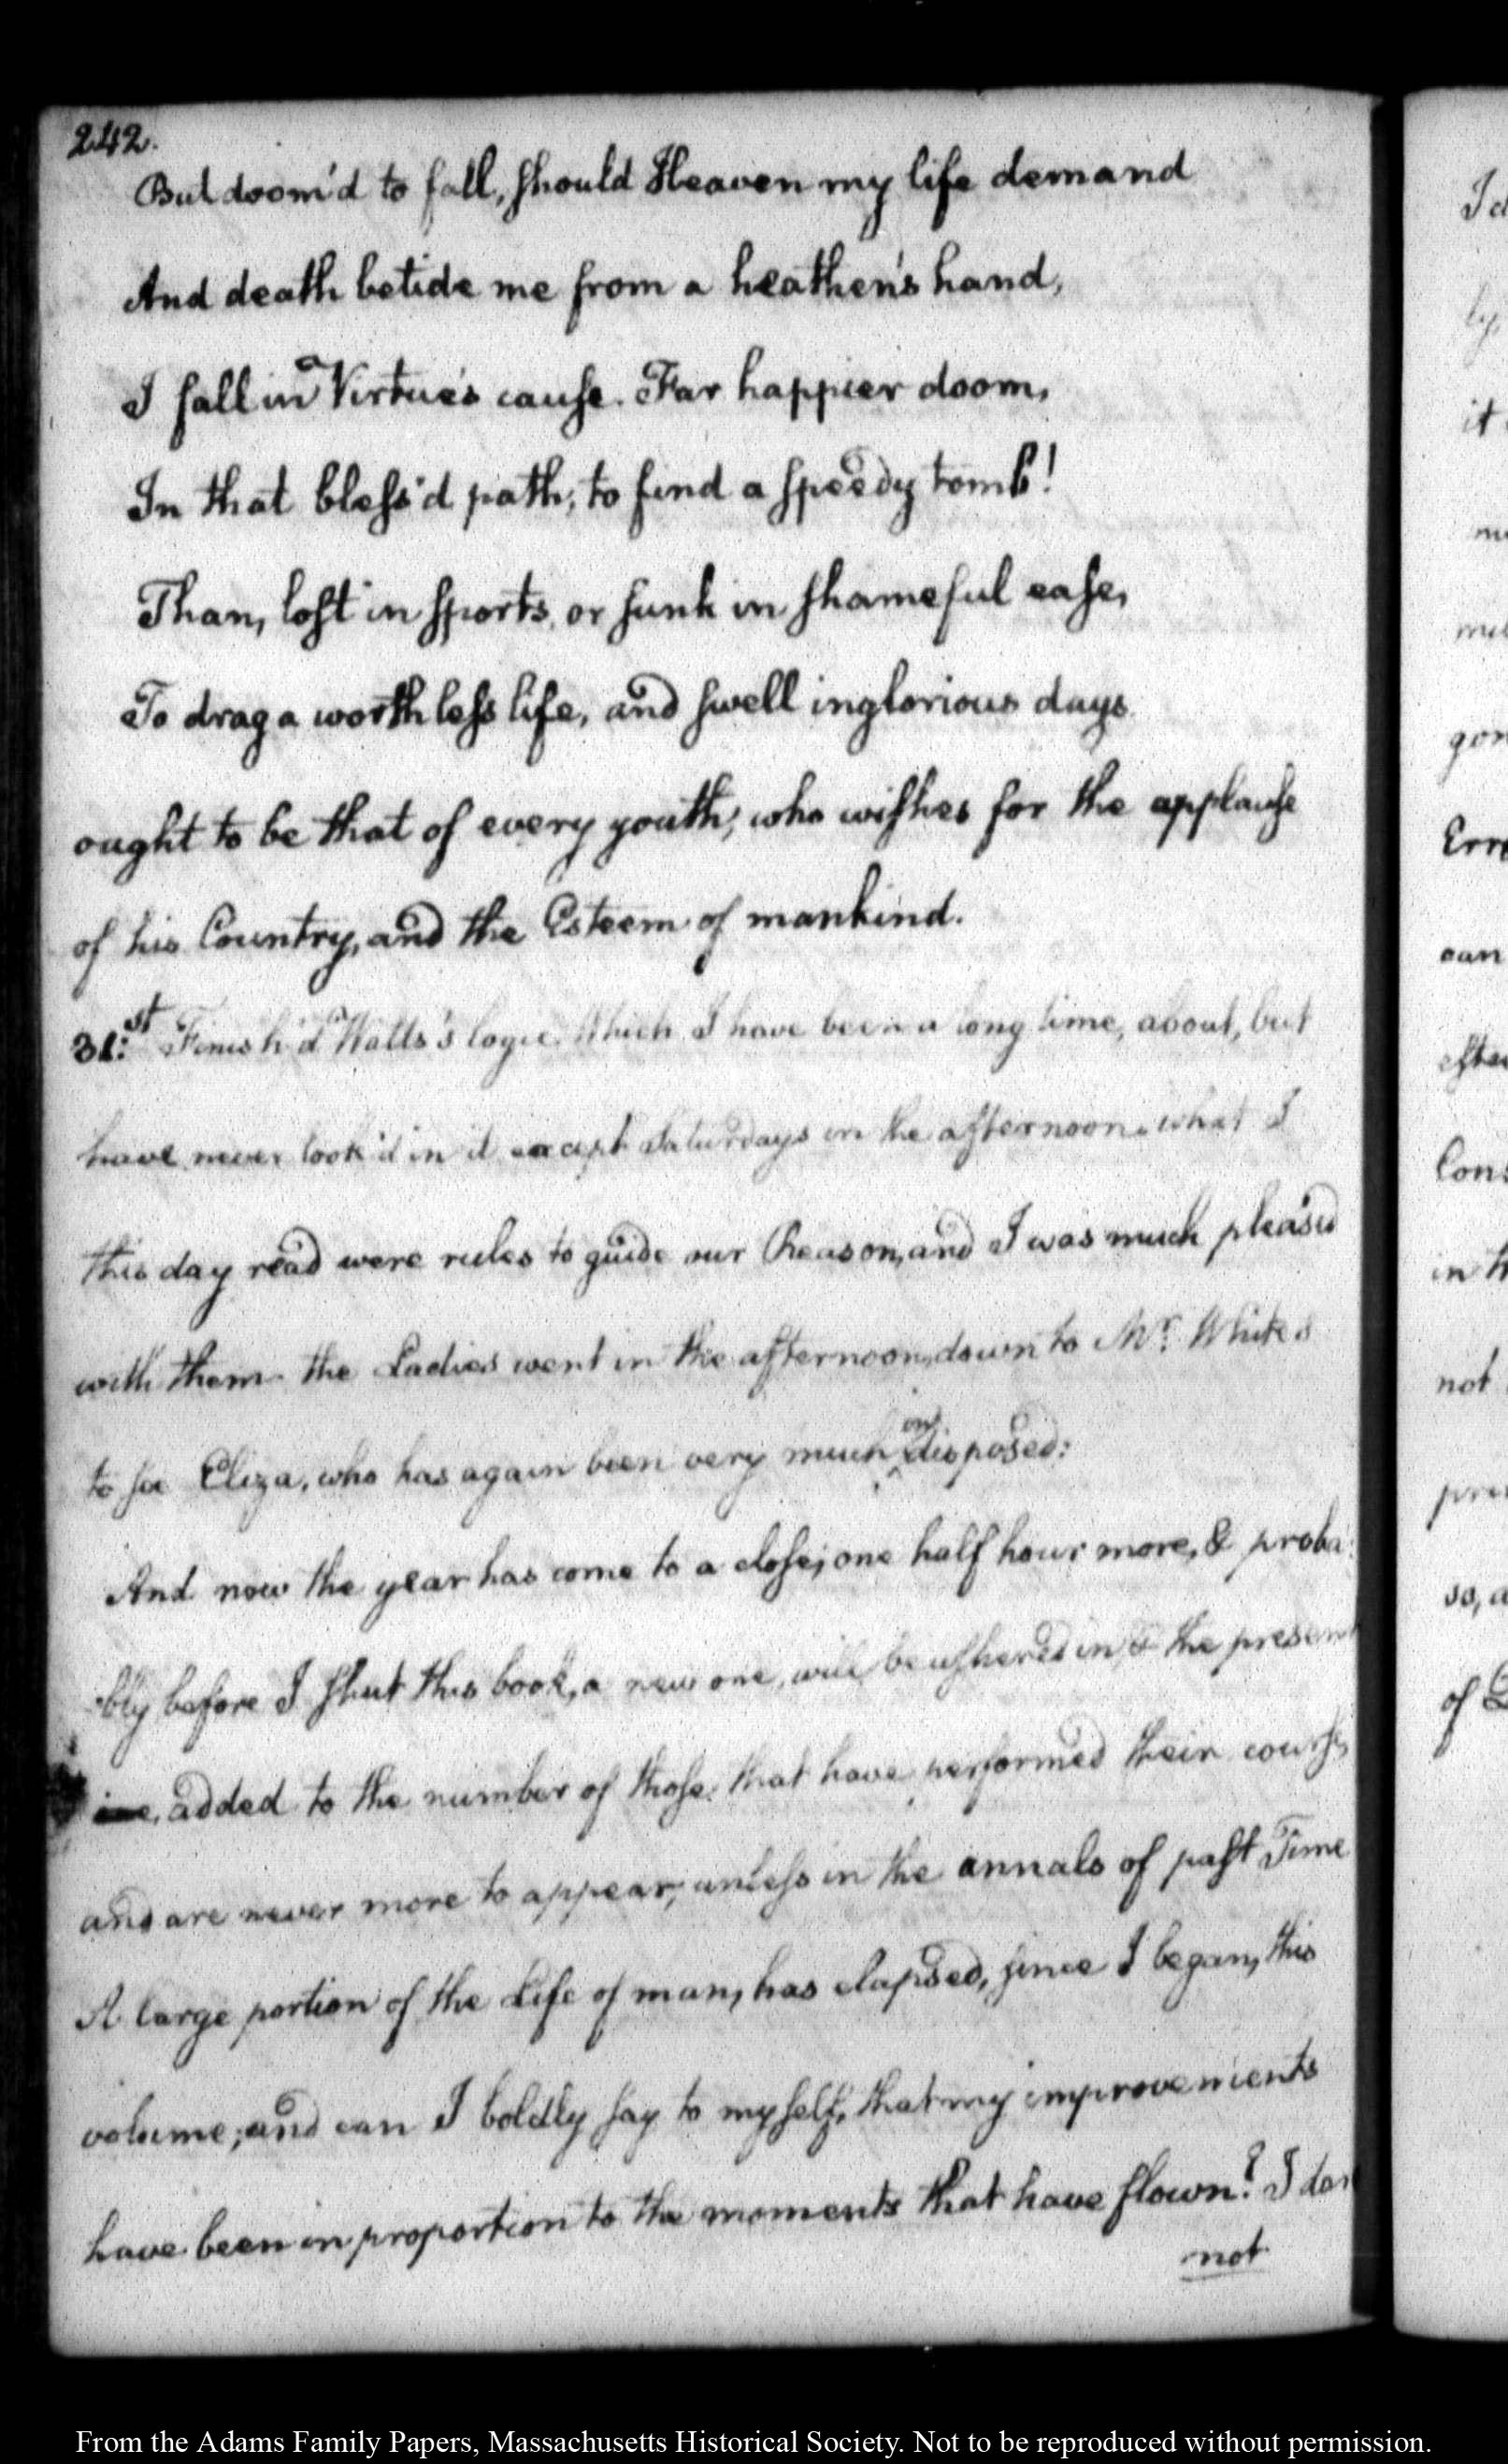 242.
But doom'd to fall, should Heaven my life demand
And death betide me from a heathen's hand,
I fall in Virtue's cause. Far happier doom,
In that bless'd path, to find a speedy tomb!
Than, lost in sports, or sunk in shameful ease,
To drag a worthless life, and swell inglorious days
ought to be that of every youth, who wishes for the applause
of his Country, and the Esteem of mankind.
31:st Finish'd Watts's logic. Which I have been a long time, about, but
have never look'd in it except Saturdays in the afternoon. what I
this day read were rules to guide our Reason, and I was much pleased
with them. the Ladies went in the afternoon, down to Mr. White's
to see Eliza, who has again been very much
disposed:
And now the year has come to a close, one half hour more, & proba
bly before I shut this book, a new one, will be usher'd in, & the present
added to the number of those, that have performed their course,
and are never more to appear, unless in the annals of past Time
A large portion of the Life of man, has elapsed, since I began, this
volume; and can I boldly say to myself, that my improvements
have been in proportion to the moments that have flown? I dar
not
I d
ly,
it
gon
Erro
can
Cons
in h
not
so, a
of
From the Adams Family Papers, Massachusetts Historical Society. Not to be reproduced without permission.